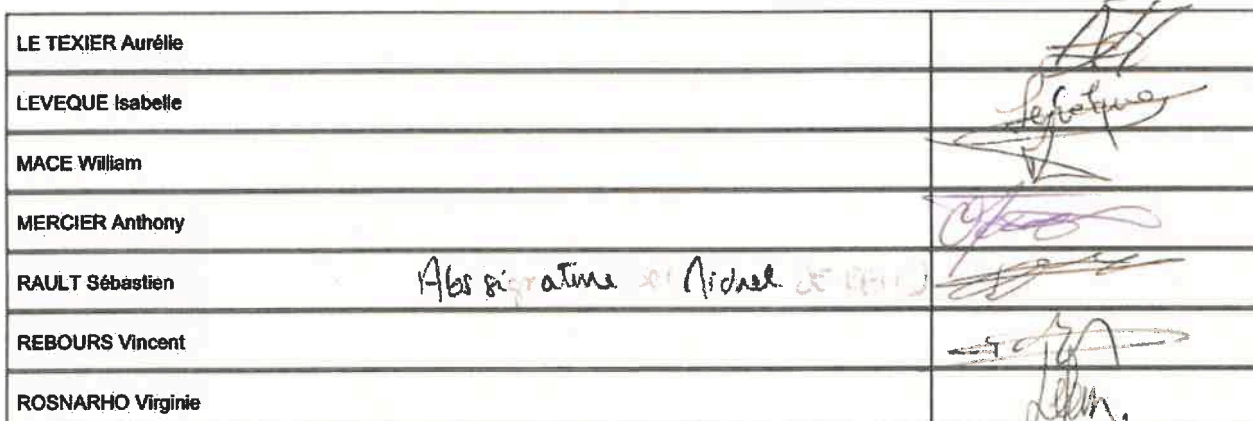 LE TEXIER Aurélie
LEVEQUE Isabelle
MACE William
MERCIER Anthony
RAULT Sébastien Abs signature Michel
REBOURS Vincent
ROSNARHO Virginie